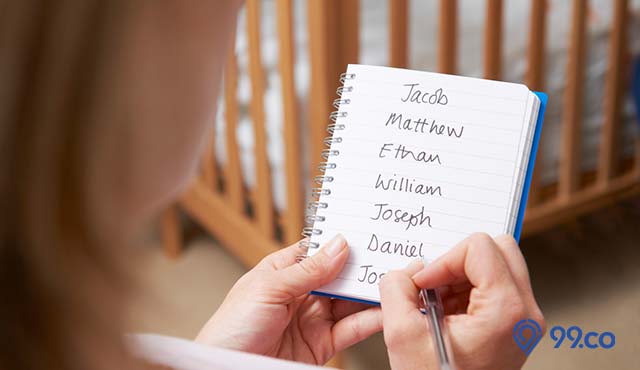 Jacob
Matthew
Ethan
William
Joseph
Daniel
99.co